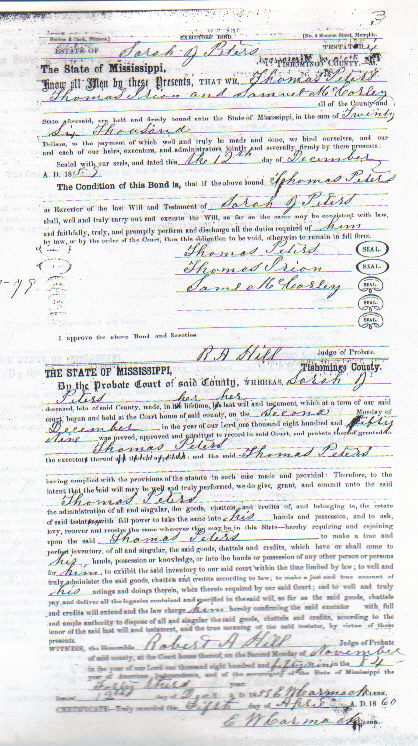 EXECUTORS' BOND.
ESTATE OF Sarah J Peters TESTATE
The State of Mississippi, TISHOMINGO COUNTY.
Know all Men by these Presents, THAT WE, Thomas Peters
Thomas Prion and Samuel McCorley
all of the County and
State aforesaid, are held and firmly bound unto the State of Mississippi, in the sum of Twenty
Six Thousand
Dollars, to the payment of which well and truly be made and done, we bind ourselves, and our
and each of our heirs, executors, and administrators, jointly and severally, firmly by these presents
Sealed with our seals, and dated this the 12th day of December
A. D. 18
The Condition of this Bond is, that if the above bound Thomas Peters
as Executor of the last Will and Testament of Sarah J Peters
shall, well and truly carry out and execute the Will, so far as the same may be consistent with law,
and faithfully, truly, and promptly perform and discharge all the duties required of him
by law, or by the order of the Court, then this obligation to be void, otherwise to remain in full force.
Thomas Peters SEAL.
Thomas Prion SEAL.
Saml McCorley SEAL.
SEAL.
SEAL.
I approve the above Bond and Sureties
R A Hill Judge of Probate.
THE STATE OF MISSISSIPPI, Tishomingo County.
By the Probate Court of said County, WHEREAS, Sarah J
Peters her her
deceased, late of said County, made, in lifetime, last will and testament, which at a term of our said
court, begun and held at the Court house of said county, on the Second Monday of
December in the year of our Lord one thousand eight hundred and fifty
Nine was proved, approved and admitted to record in said Court, and probate thereof granted to
Thomas Peters
the executor thereof and the said Thomas Peters
having complied with the provisions of the statute in such case made and provided: Therefore, to the
intent that the said will may be well and truly performed, we do give, grant, and commit unto the said
Thomas Peters
the administration of all and singular, the goods, chattels and credits of, and belonging to, the estate
of said testatory with full power to take the same into his hands and possession, and to ask,
levy, recover and receive the same wheresoever they may be in this State—hereby requiring and enjoining
upon the said Thomas Peters to make a true and
perfect inventory, of all and singular, the said goods, chattels and credits, which have or shall come to
his hands, possession or knowledge, or into the hands or possession of any other person or persons
for him, to exhibit the said inventory to our said court within the time limited by law; to well and
truly administer the said goods, chattels and credits according to law; to make a just and true account of
his actings and doings therein, when thereto required by our said Court; and to well and truly
pay and deliver all the legacies contained and specified in the said will, so far as the said goods, chattels
and credits will extend and the law charge him hereby confirming the said executor with full
and ample authority to dispose of all and singular the said goods, chattels and credits, according to the
tenor of the said last will and testament, and the true meaning of the said testator, by virtue of these
presents.
WITNESS, the Honorable Robert A Hill Judge of Probate
of said county, at the Court house thereof, on the Second Monday of November
in the year of our Lord one thousand eight hundred and fifty nine the 84
year of American Independence, and of the sovereignty of the State of Mississippi the
Forty third
Issued Dec A D 18 E W Carmack CLERK.
CERTIFICATE—Truly recorded the First day of April A. D. 1860
E W Carmack CLERK.